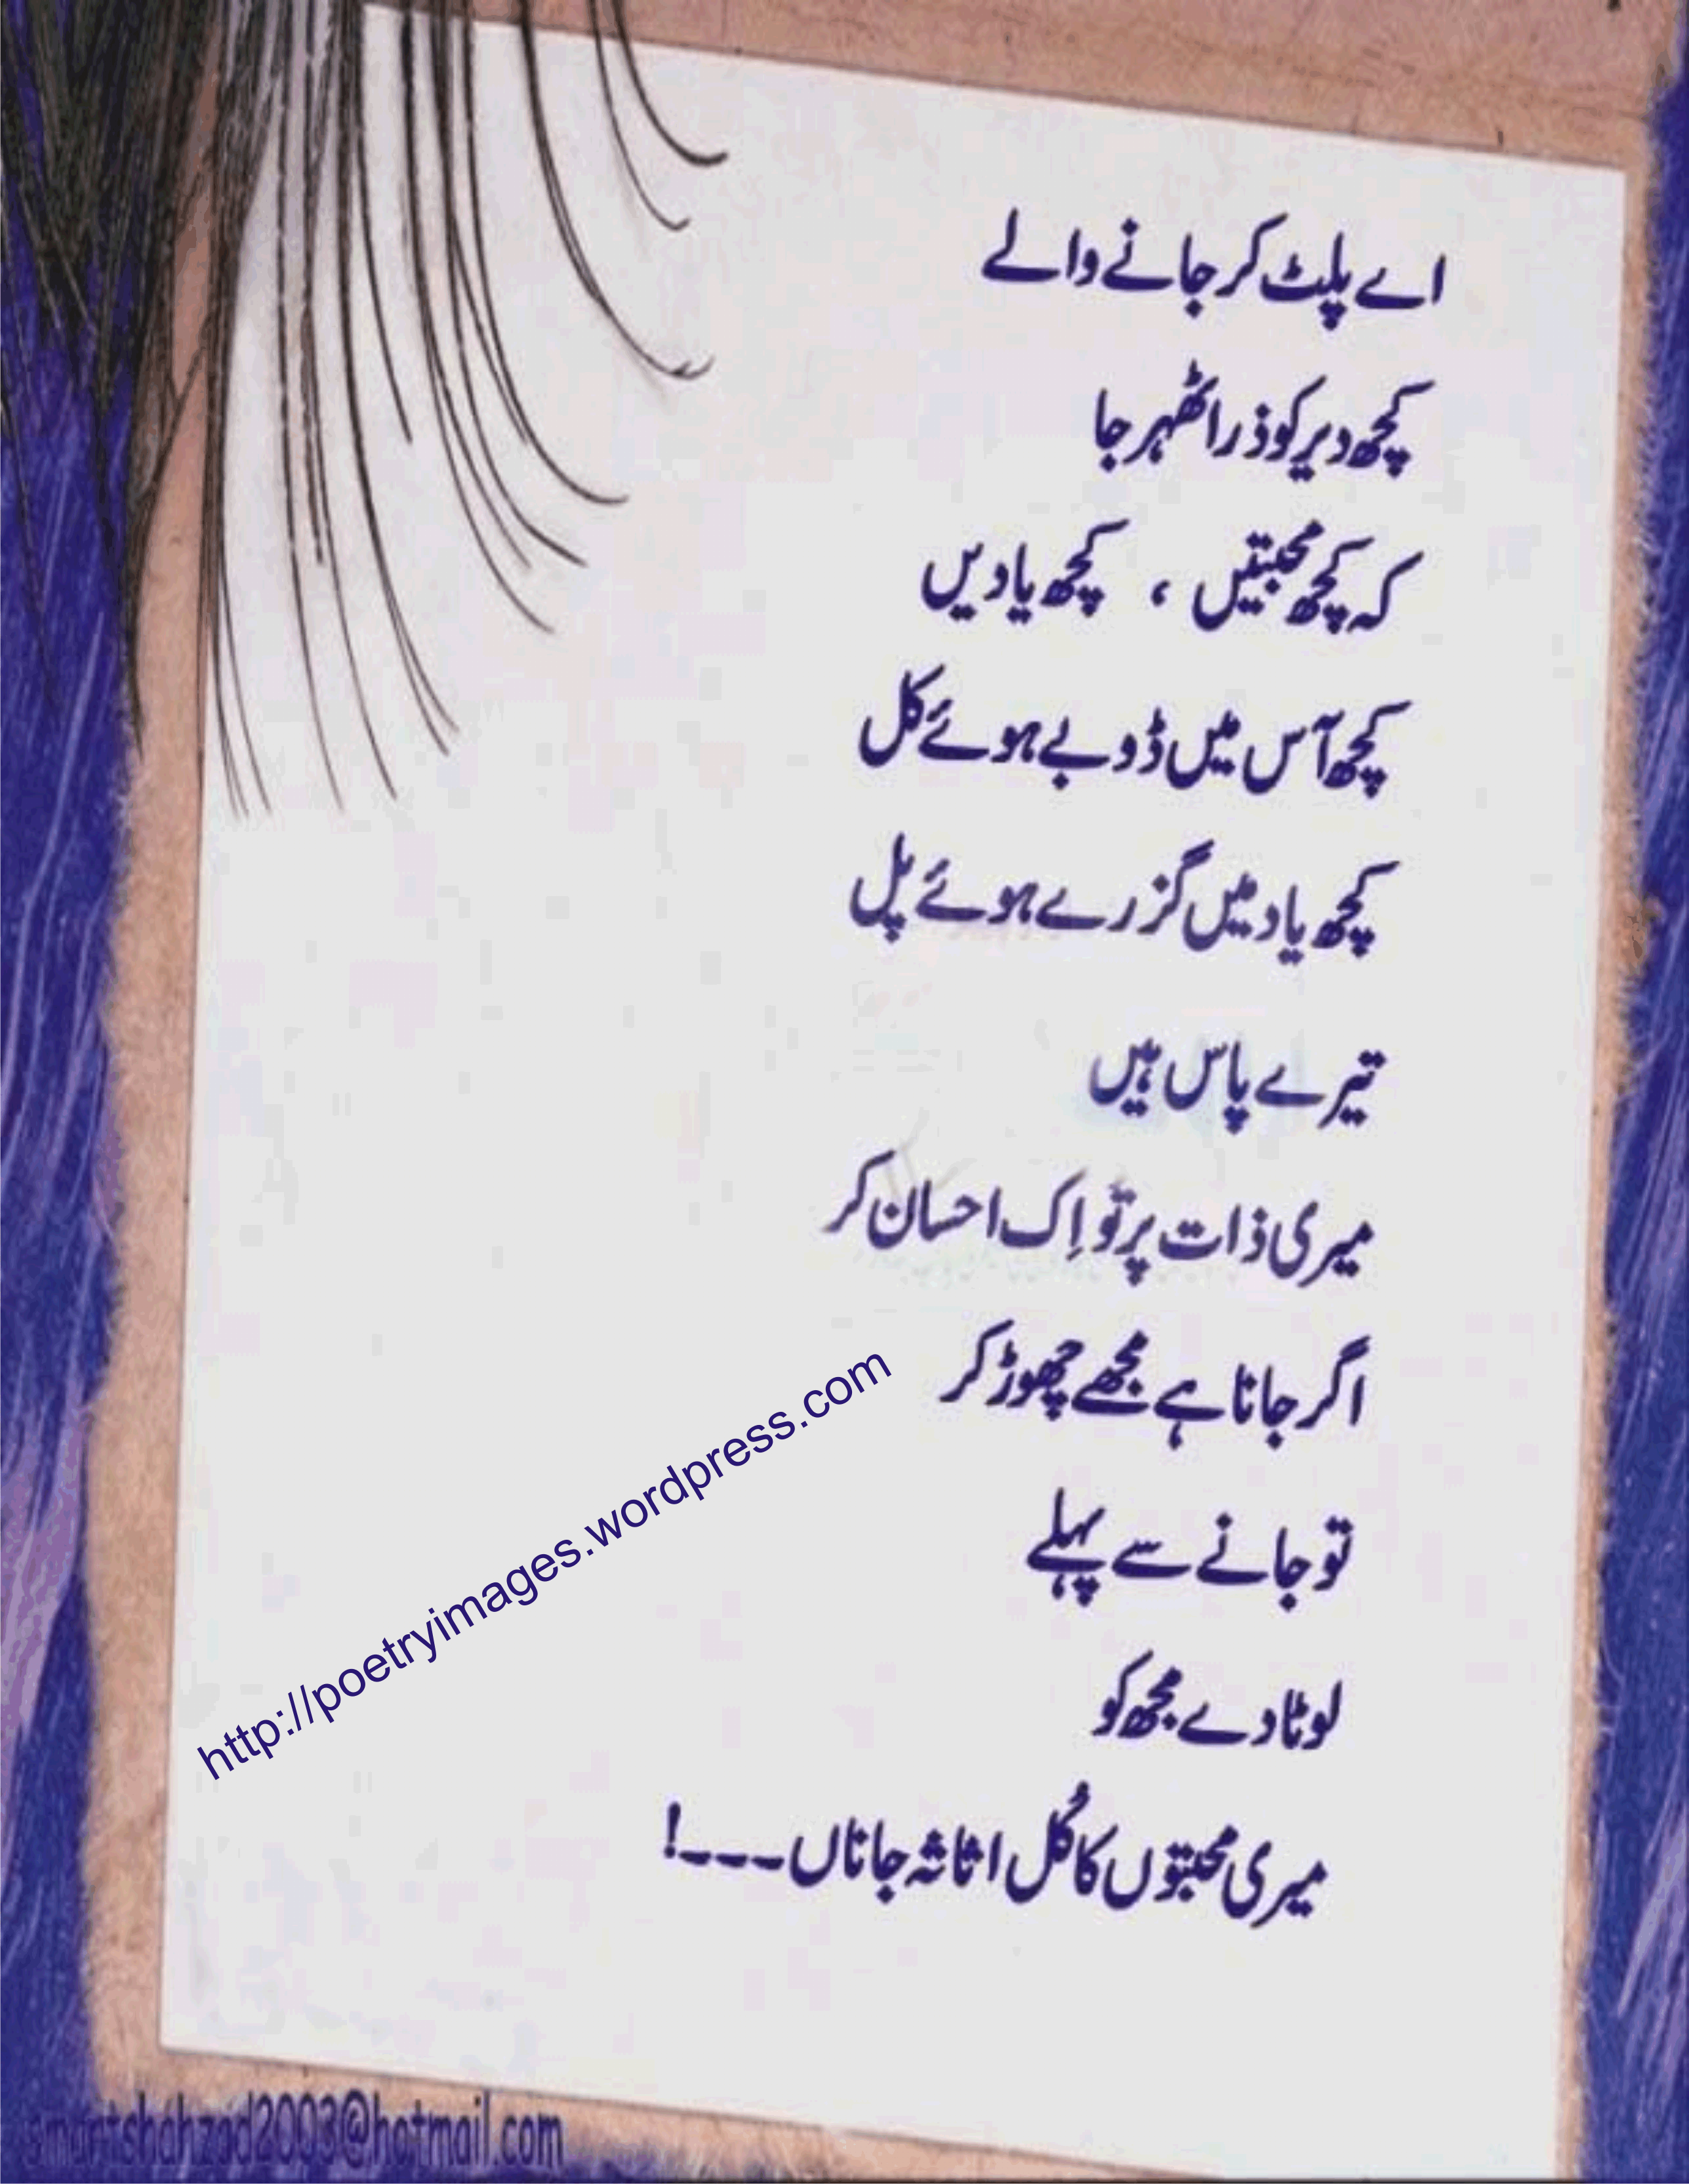 اے پلٹ کر جانے والے
کچھ دیر کو ذرا ٹھہر جا
کہ کچھ محبتیں ، کچھ یادیں
کچھ آس میں ڈوبے ہوئے کل
کچھ یاد میں گزرے ہوئے پل
تیرے پاس ہیں
میری ذات پر تو اِک احسان کر
اگر جانا ہے مجھے چھوڑ کر
تو جانے سے پہلے
لوٹا دے مجھ کو
میری محبتوں کا کُل اثاثہ جاناں ۔۔۔!
http://poetryimages.wordpress.com
smartshahzad2003@hotmail.com